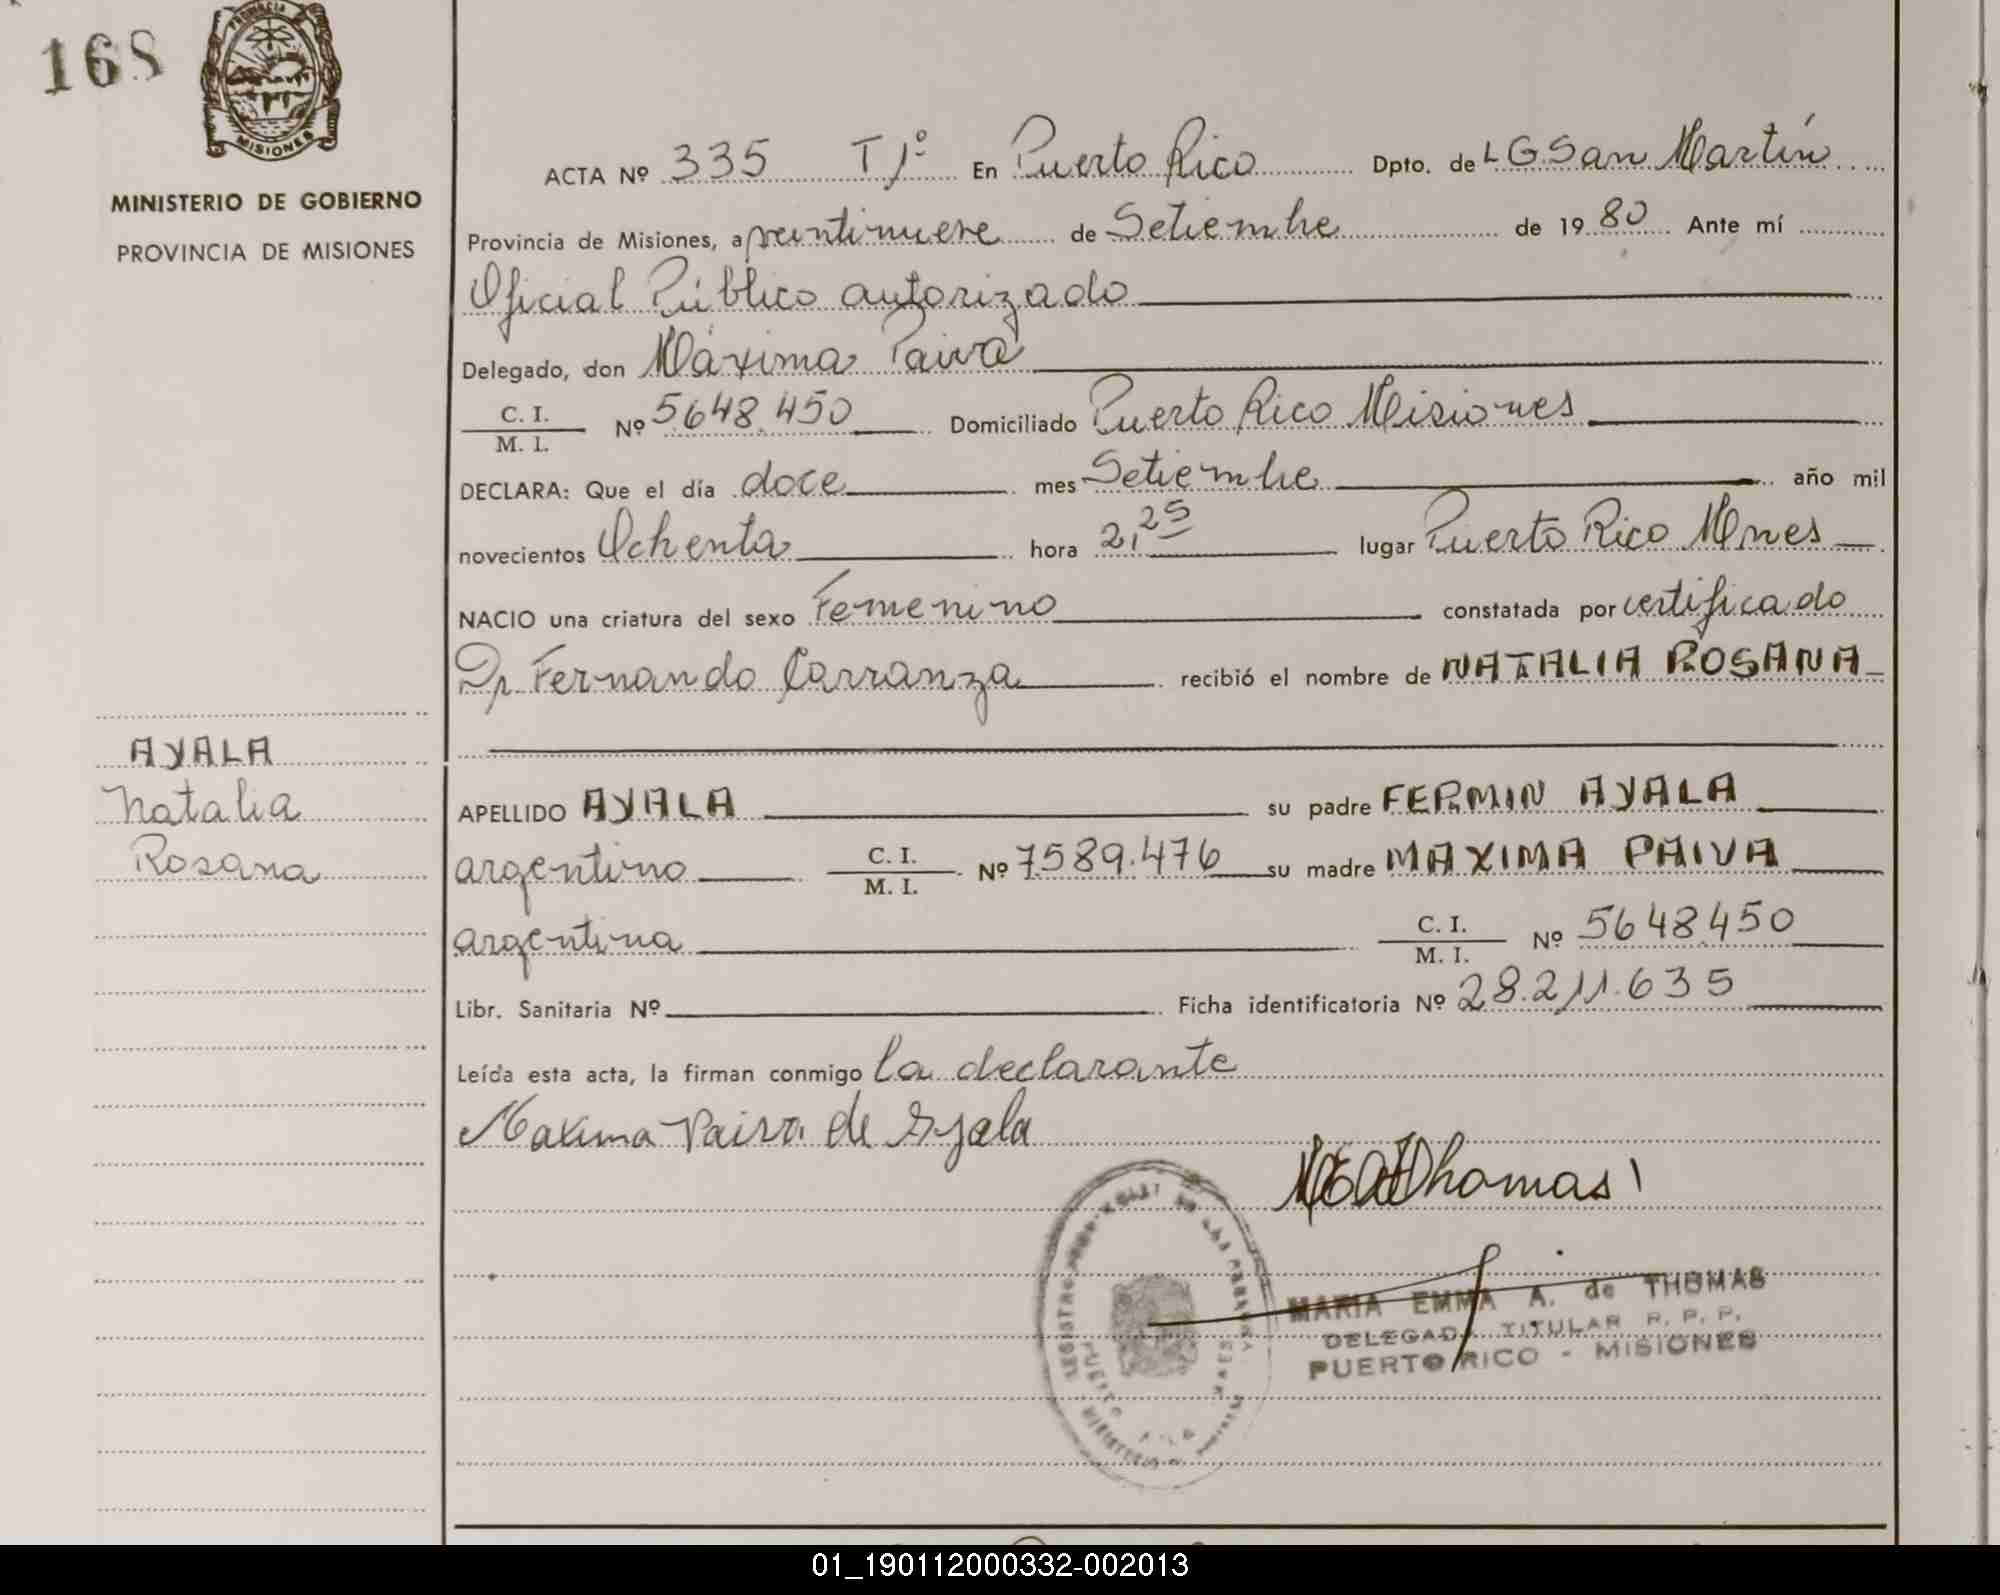 168
PROVINCIA
MISIONES
MINISTERIO DE GOBIERNO
PROVINCIA DE MISIONES
ACTA Nº 335 T1º En Puerto Rico Dpto. de L G San Martín
Provincia de Misiones, a veintinueve de Setiembre de 1980 Ante mí
Oficial Público autorizado
Delegado, don Máxima Paiva
C. I.
M. I. Nº 5.648.450 Domiciliado Puerto Rico Misiones
DECLARA: Que el día doce mes Setiembre año mil
novecientos Ochenta hora 2,25 lugar Puerto Rico Mnes
NACIO una criatura del sexo Femenino constatada por certificado
Dr. Fernando Carranza recibió el nombre de NATALIA ROSANA
AYALA
Natalia
Rosana
APELLIDO AYALA su padre FERMIN AYALA
argentino C. I.
M. I. Nº 7.589.476 su madre MAXIMA PAIVA
argentina C. I.
M. I. Nº 5648.450
Libr. Sanitaria Nº Ficha identificatoria Nº 28.211.635
Leída esta acta, la firman conmigo la declarante
Maxima Paiva de Ayala
MEAdThomas
MARIA EMMA A. de THOMAS
DELEGADA TITULAR R. P. P.
PUERTO RICO - MISIONES
01_190112000332-002013